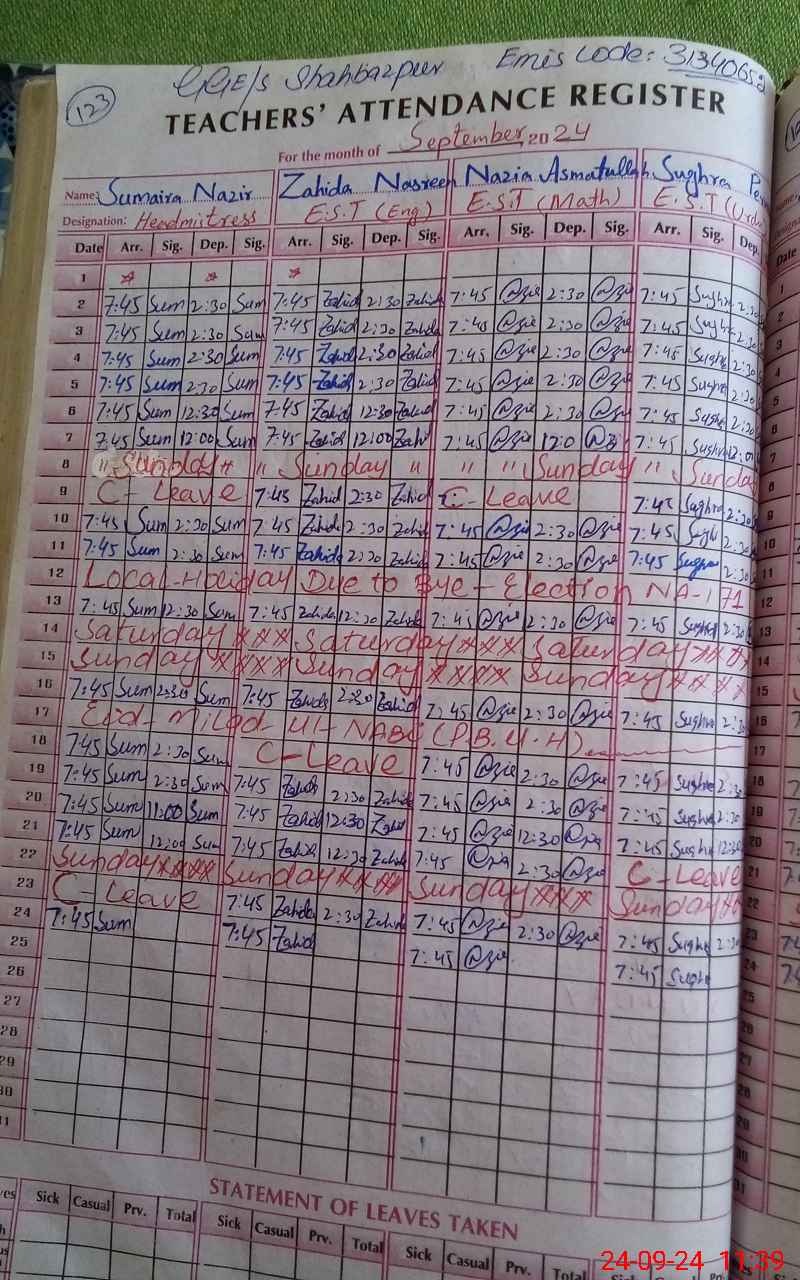 123
GGE/S Shahbazpur Emis Code: 3134065
TEACHERS' ATTENDANCE REGISTER
For the month of September, 2024
Name: Sumaira Nazir Zahida Nasreen Nazia Asmatullah Sughra
Designation: Headmistress E.S.T (Eng) E.S.T (Math) E.S.T (Urdu
Date Arr. Sig. Dep. Sig. Arr. Sig. Dep. Sig. Arr. Sig. Dep. Sig. Arr. Sig. Dep.
1
2 7:45 Sum 2:30 Sum 7:45 Zahid 2:30 Zahid 7:45 2:30 7:45 Sughra 2:30
3 7:45 Sum 2:30 Sum 7:45 Zahid 2:30 Zahida 7:45 2:30 7:45 Sughra 2:30
4 7:45 Sum 2:30 Sum 7:45 Zahid 2:30 Zahid 7:45 2:30 7:45 Sughr 2:30
5 7:45 Sum 2:30 Sum 7:45 Zahid 2:30 Zahid 7:45 2:30 7:45 Sughra 2:30
6 7:45 Sum 12:30 Sum 7:45 Zahid 12:30 Zahid 7:45 2:30 7:45 Sughr 2:30
7 7:45 Sum 12:00 Sum 7:45 Zahid 12:00 Zahi 7:45 12:0 7:45 Sughra 12:0
8 " Sunday " " Sunday " " " Sunday " Sunday
9 C- Leave 7:45 Zahid 2:30 Zahid C- Leave 7:45 Sughra 2:30
10 7:45 Sum 2:30 Sum 7:45 Zahid 2:30 Zahid 7:45 2:30 7:45 Sugh 2:30
11 7:45 Sum 2:30 Sum 7:45 Zahida 2:30 Zahid 7:45 2:30 7:45 Sughra 2:30
12 Local-Holiday Due to Bye-Election NA-171
13 7:45 Sum 12:30 Sum 7:45 Zahida 12:30 Zahida 7:45 2:30 7:45 Sughra 2:30
14 Saturday *** Saturday *** Saturday ***
15 Sunday **** Sunday **** Sunday ***
16 7:45 Sum 2:30 Sum 7:45 Zahida 2:30 Zahid 7:45 2:30 7:45 Sughra 2:30
17 Eid-Milad-Ul-NABI (P.B.U.H)
18 7:45 Sum 2:30 Sum C-Leave 7:45 2:30 7:45 Sughra 2:30
19 7:45 Sum 2:30 Sum 7:45 Zahid 2:30 Zahid 7:45 2:30 7:45 Sughra 2:30
20 7:45 Sum 11:00 Sum 7:45 Zahid 12:30 Zahid 7:45 12:30 7:45 Sughra 12:30
21 7:45 Sum 12:00 Sum 7:45 Zahid 12:30 Zahid 7:45 2:30 C-Leave
22 Sunday **** Sunday **** Sunday *** Sunday **
23 C- Leave 7:45 Zahida 2:30 Zahid 7:45 2:30 7:45 Sughra 2:30
24 7:45 Sum 7:45 Zahid 7:45 7:45 Sughr
25
26
27
28
29
30
31
STATEMENT OF LEAVES TAKEN
Sick Casual Prv. Total Sick Casual Prv. Total Sick Casual Prv. Total Sick
24-09-24 11:39